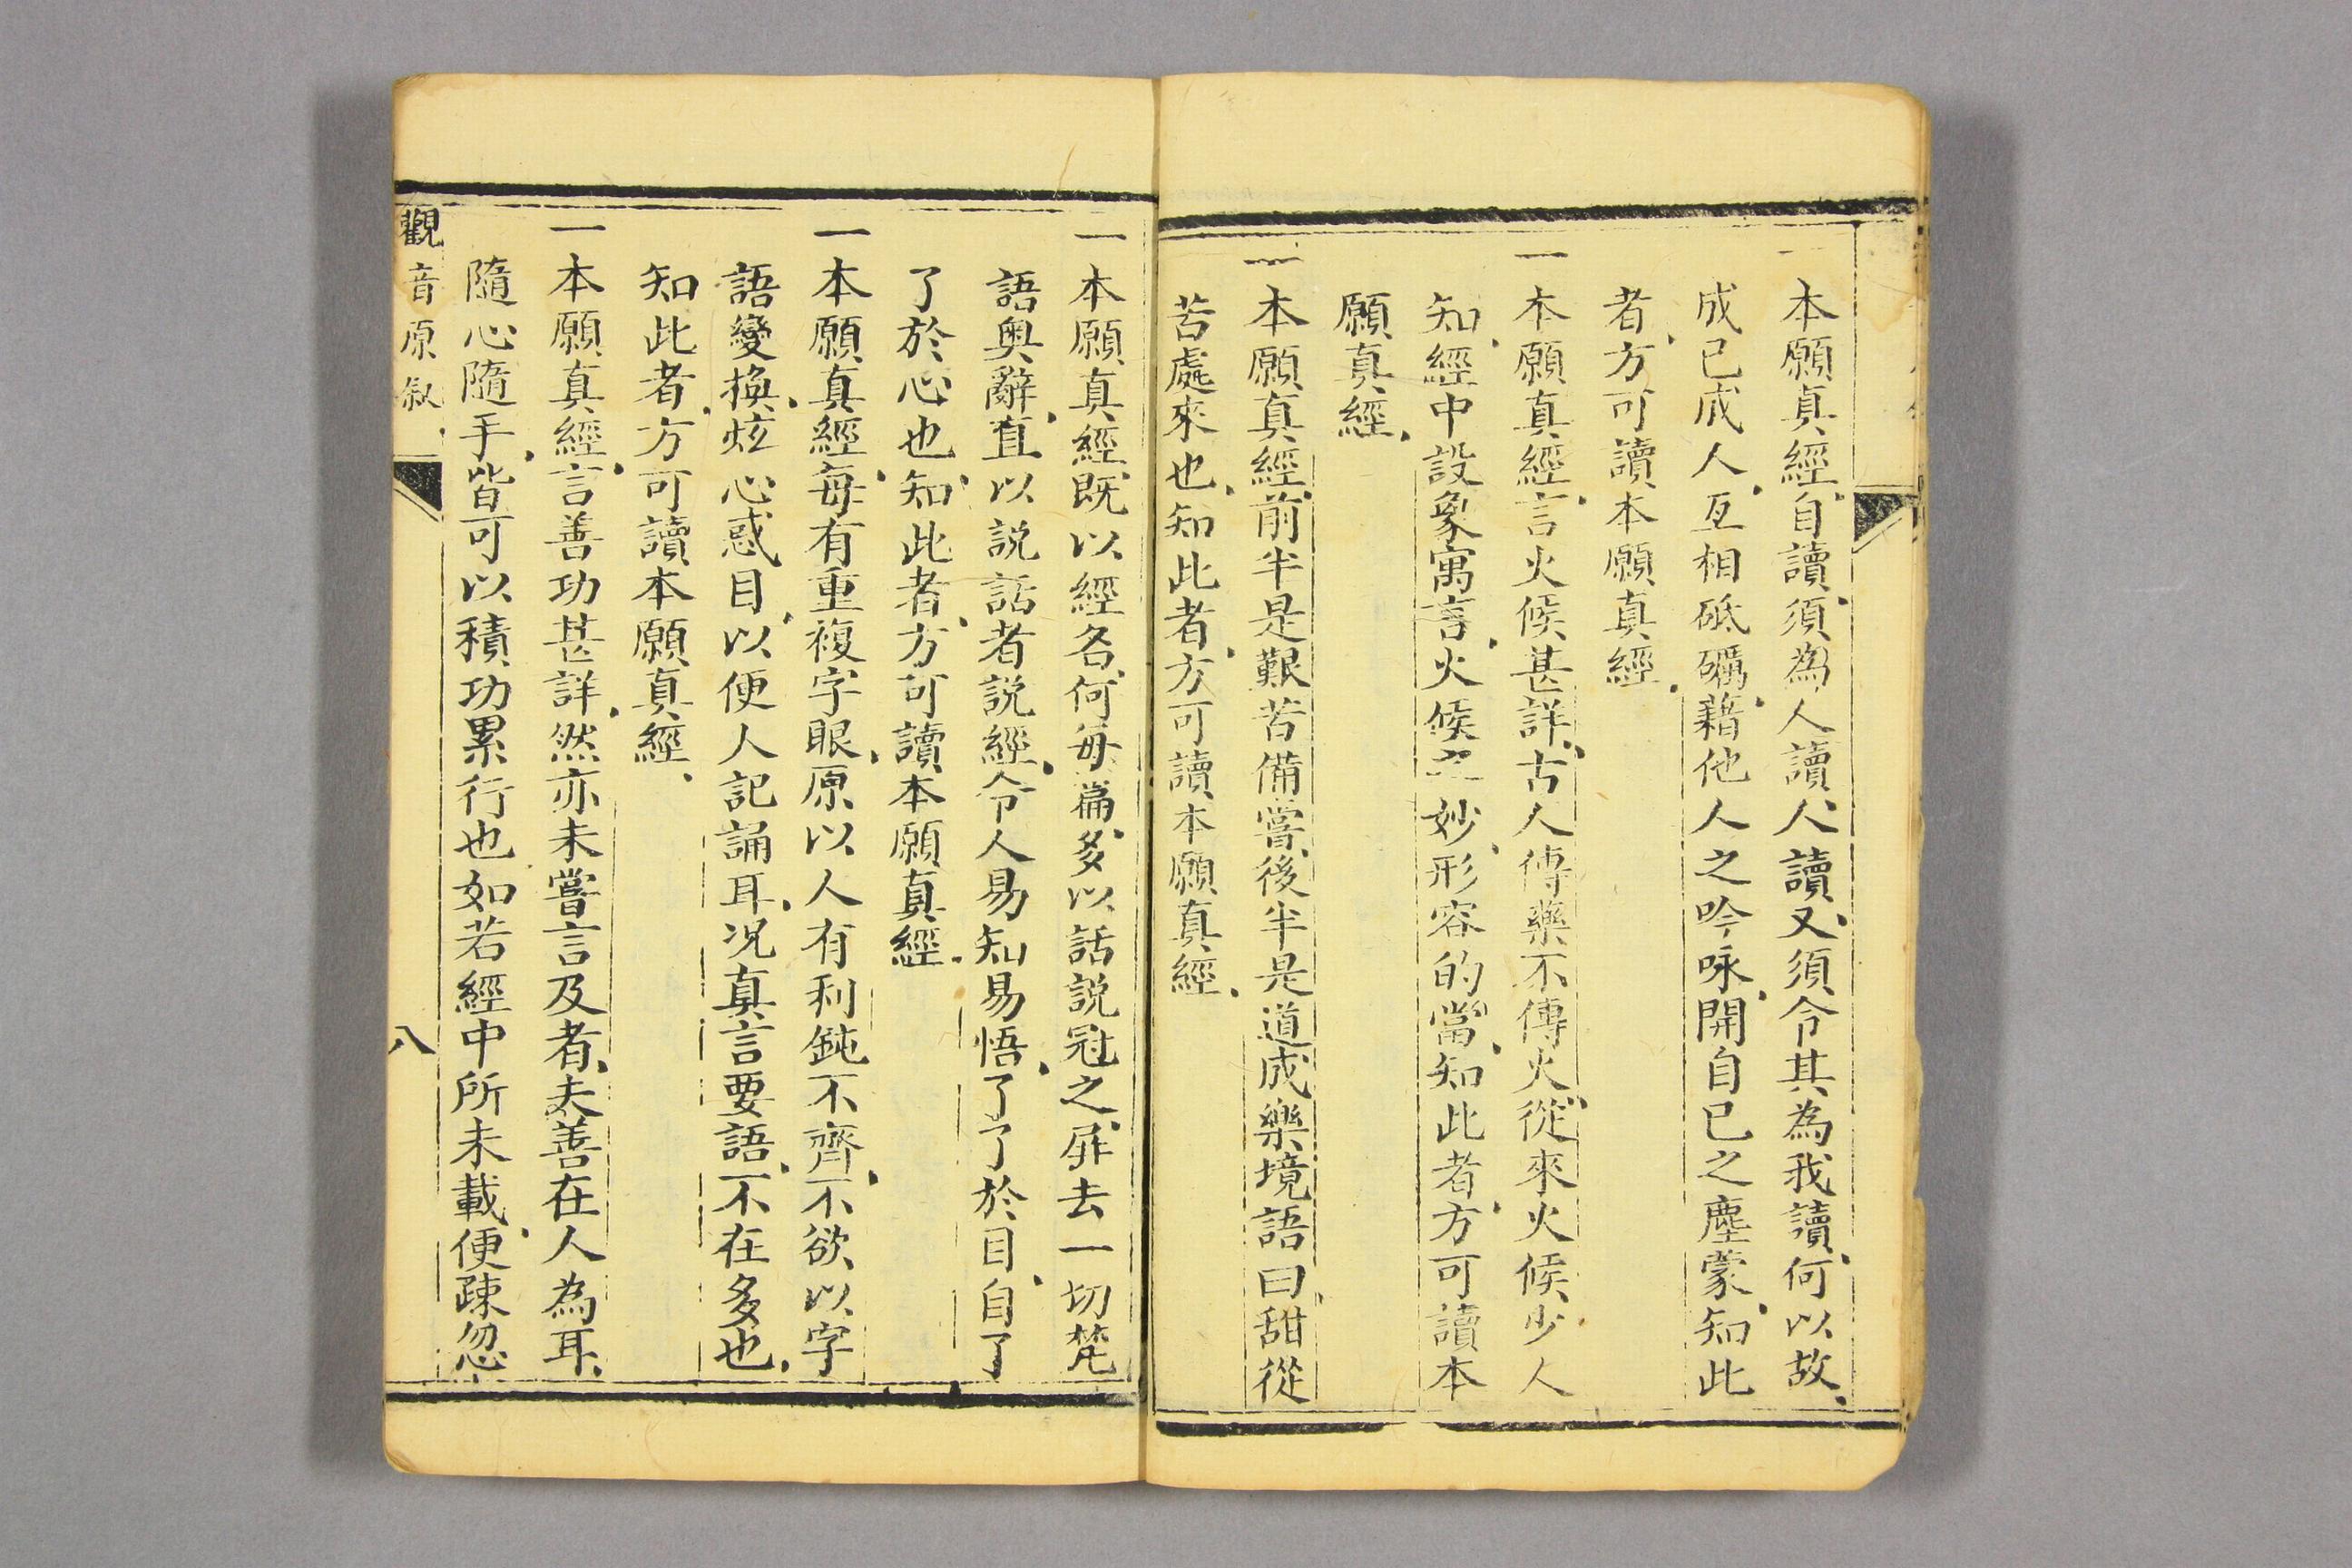 一本願真經自讀須為人讀人讀又須令其為我讀何以故
成已成人互相砥礪藉他人之吟咏開自已之塵蒙知此
者方可讀本願真經
一本願真經言火候甚詳古人傳藥不傳火從來火候少人
知經中設象寓言火候之妙形容的當知此者方可讀本
願真經
一本願真經前半是艱苦備嘗後半是道成樂境語曰甜從
苦處來也知此者方可讀本願真經
一本願真經既以經名何毎篇多以話説冠之屏去一切梵
語奥辭直以説話者説經令人易知易悟了了於目自了
了於心也知此者方可讀本願真經
一本願真經毎有重複字眼原以人有利鈍不齊不欲以字
語變換炫心惑目以便人記誦耳况真言要語不在多也
知此者方可讀本願真經
一本願真經言善功甚詳然亦未嘗言及者夫善在人為耳
隨心隨手皆可以積功累行也如若經中所未載便疎忽
觀音原叙 八